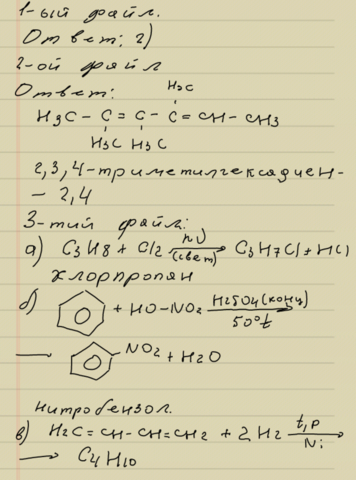 1-ый файл.
Ответ: 2)
2-ой файл
Ответ:
H3C
H3C - C = C - C = CH - CH3
H3C H3C
2,3,4-триметилгексадиен-
- 2,4
3-тий файл:
а) C3H8 + Cl2 hν (свет) → C3H7Cl + HCl
хлорпропан
б) + HO-NO2 H2SO4(конц) 50°t →
→ NO2 + H2O
нитробензол.
в) H2C=CH-CH=CH2 + 2H2 t,P Ni →
→ C4H10